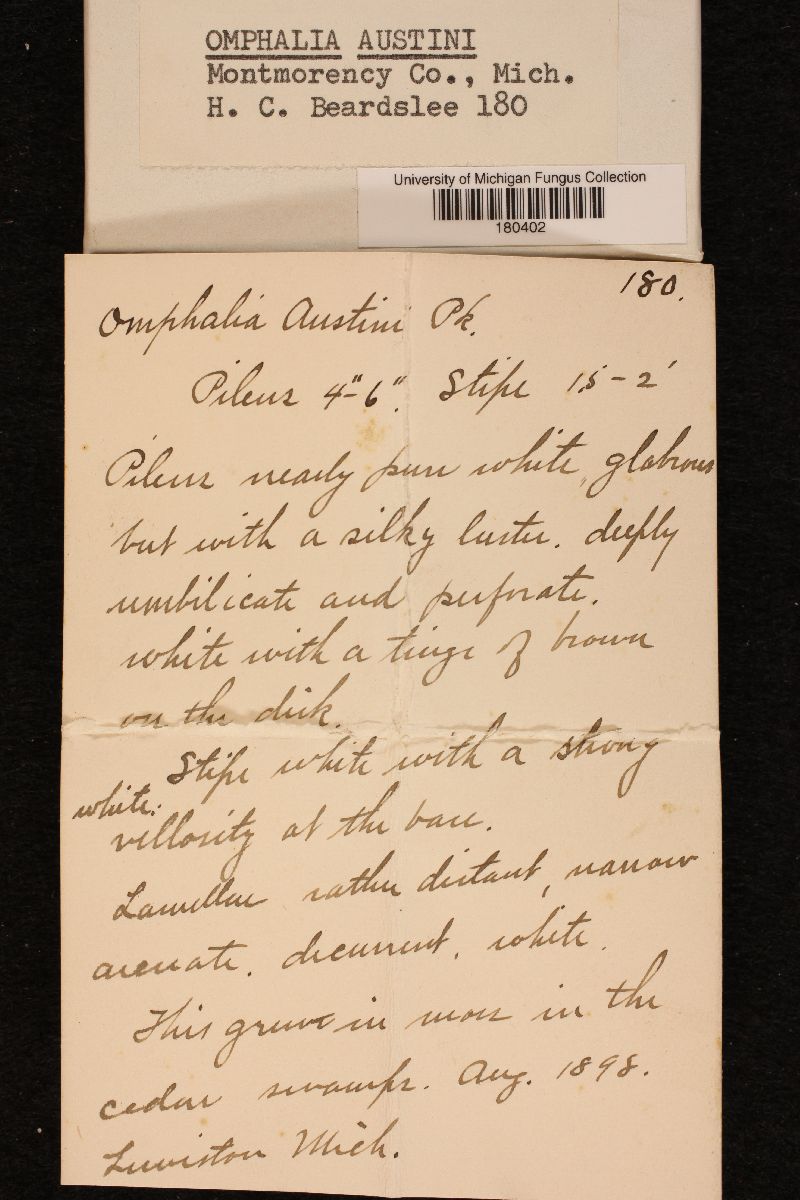 OMPHALIA AUSTINI
Montmorency Co., Mich.
H. C. Beardslee 180
University of Michigan Fungus Collection
180402
180.
Omphalia Austini Pk.
Pileus 4"-6". Stipe 1.5-2'
Pileus nearly pure white, glabrous
but with a silky luster. deeply
umbilicate and perforate.
white with a tinge of brown
on the disk.
Stipe white with a strong
white.
villosity at the base.
Lamellae rather distant, narrow
arcuate. decurrent, white.
This grew in moss in the
cedar swamps. Aug. 1898.
Lewiston Mich.